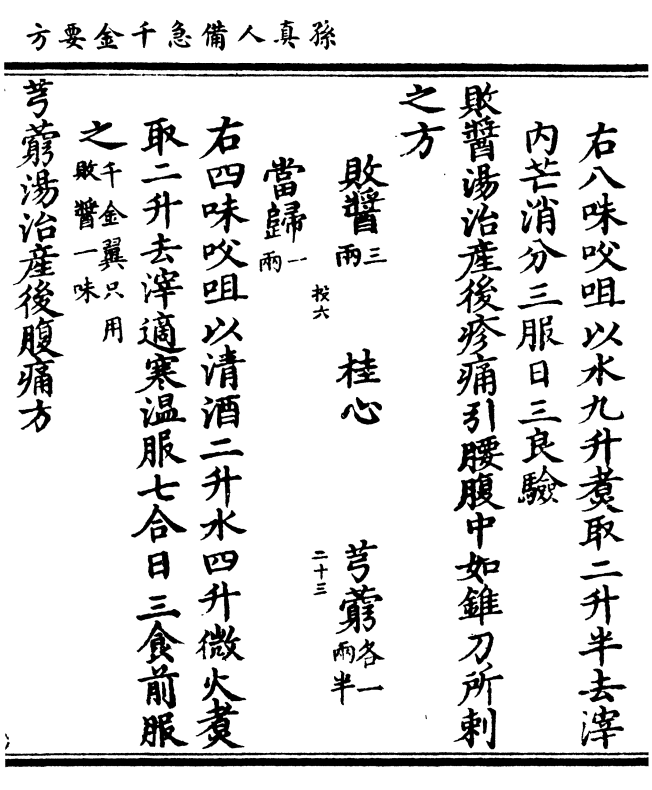 孫真人備急千金要方
右八味㕮咀以水九升煑取二升半去滓
內芒消分三服日三良驗
敗醬湯治産後疹痛引腰腹中如錐刀所刺
之方
敗醬三兩 桂心 芎藭各一兩半
當歸一兩
投六 二十三
右四味㕮咀以清酒二升水四升微火煑
取二升去滓適寒温服七合日三食前服
之千金翼只用敗醬一味
芎藭湯治産後腹痛方